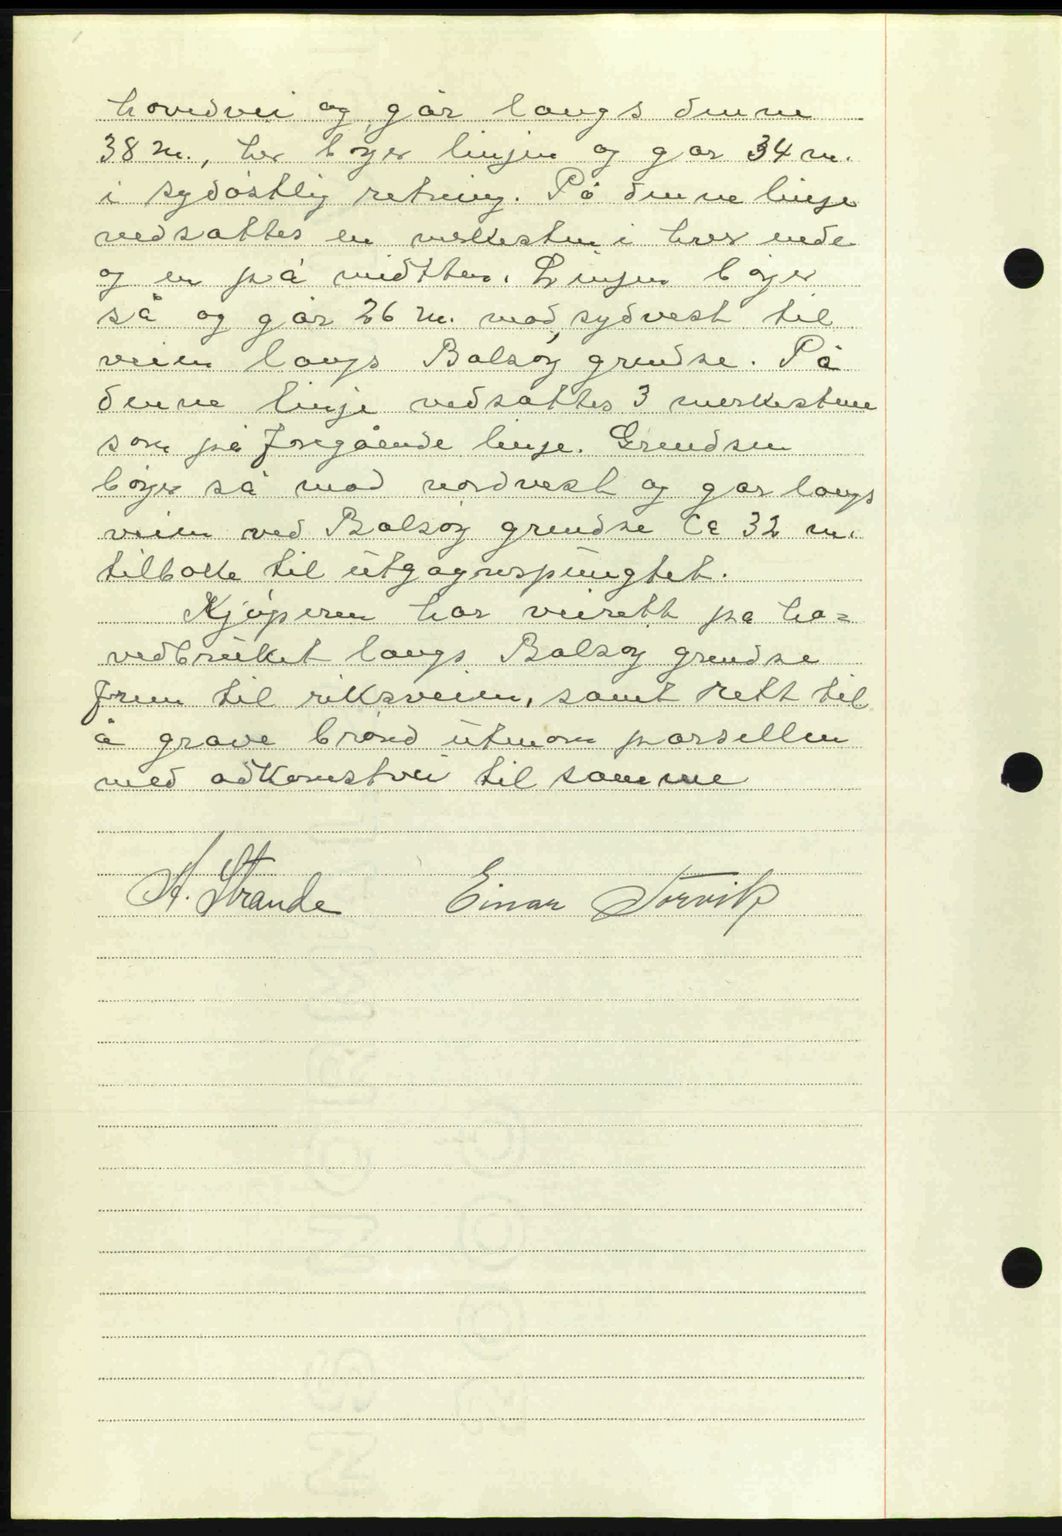 hovedvei og går langs denne
38 m., her bøyer linjen og går 34 m.
i sydøstlig retning. På denne linje
nedsattes en merkesten i hver ende
og en på midtten. Linjen bøyer
så og går 26 m. mod sydvest til
veien langs Balsøy grendse. På
denne linje nedsattes 3 merkestene
som på foregående linje. Grendsen
bøyer så mod nordvest og går langs
veien ved Balsøy grendse ca 32 m.
tilbake til utgagnspungtet.
Kjøperen har veirett på ho=
vedbruket langs Balsøy grendse
frem til riksveien, samt rett til
å grave brønd utenom parsellen
med adkomstvei til samme
A. Strande Einar Torvik
NS NORM